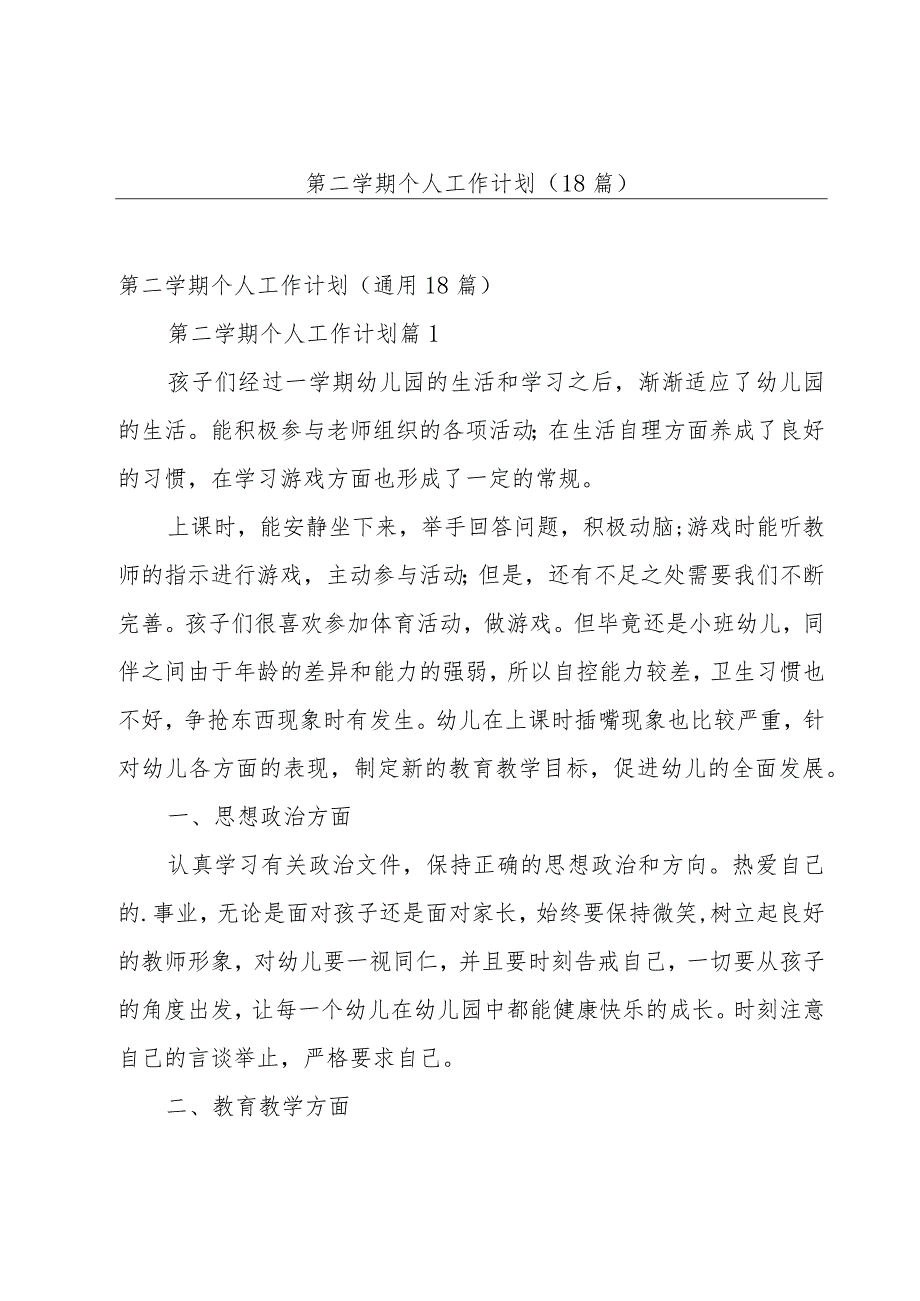 第二学期个人工作计划（18 篇）
第二学期个人工作计划（通用 18 篇）
第二学期个人工作计划篇 1
孩子们经过一学期幼儿园的生活和学习之后，渐渐适应了幼儿园
的生活。能积极参与老师组织的各项活动；在生活自理方面养成了良好
的习惯，在学习游戏方面也形成了一定的常规。
上课时，能安静坐下来，举手回答问题，积极动脑;游戏时能听教
师的指示进行游戏，主动参与活动；但是，还有不足之处需要我们不断
完善。孩子们很喜欢参加体育活动，做游戏。但毕竟还是小班幼儿，同
伴之间由于年龄的差异和能力的强弱，所以自控能力较差，卫生习惯也
不好，争抢东西现象时有发生。幼儿在上课时插嘴现象也比较严重，针
对幼儿各方面的表现，制定新的教育教学目标，促进幼儿的全面发展。
一、思想政治方面
认真学习有关政治文件，保持正确的思想政治和方向。热爱自己
的.事业，无论是面对孩子还是面对家长，始终要保持微笑,树立起良好
的教师形象，对幼儿要一视同仁，并且要时刻告戒自己，一切要从孩子
的角度出发，让每一个幼儿在幼儿园中都能健康快乐的成长。时刻注意
自己的言谈举止，严格要求自己。
二、教育教学方面